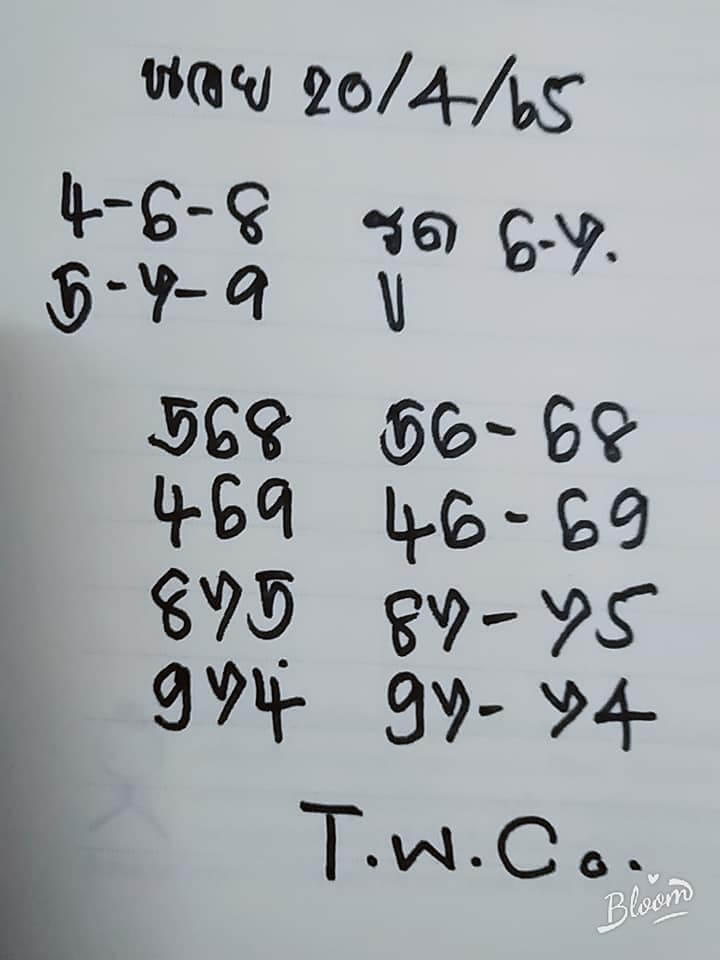 ฮานอย 20/4/65
4-6-8 รูด 6-7.
5-7-9 ||
568 56-68
469 46-69
875 87-75
974 97-74
T.W.Co.
Bloom